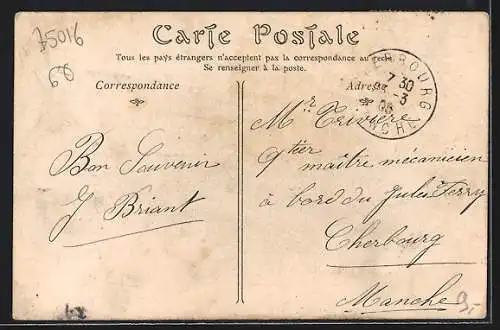 75016
Carte Postale
Tous les pays étrangers n'acceptent pas la correspondance au recto
Se renseigner à la poste.
Correspondance
Adresse
CHERBOURG
7 30
-3
08
MANCHE
Bon Souvenir
J Briant
Mr Trivière
qtier maître mécanicien
à bord du Jules Ferry
Cherbourg
Manche